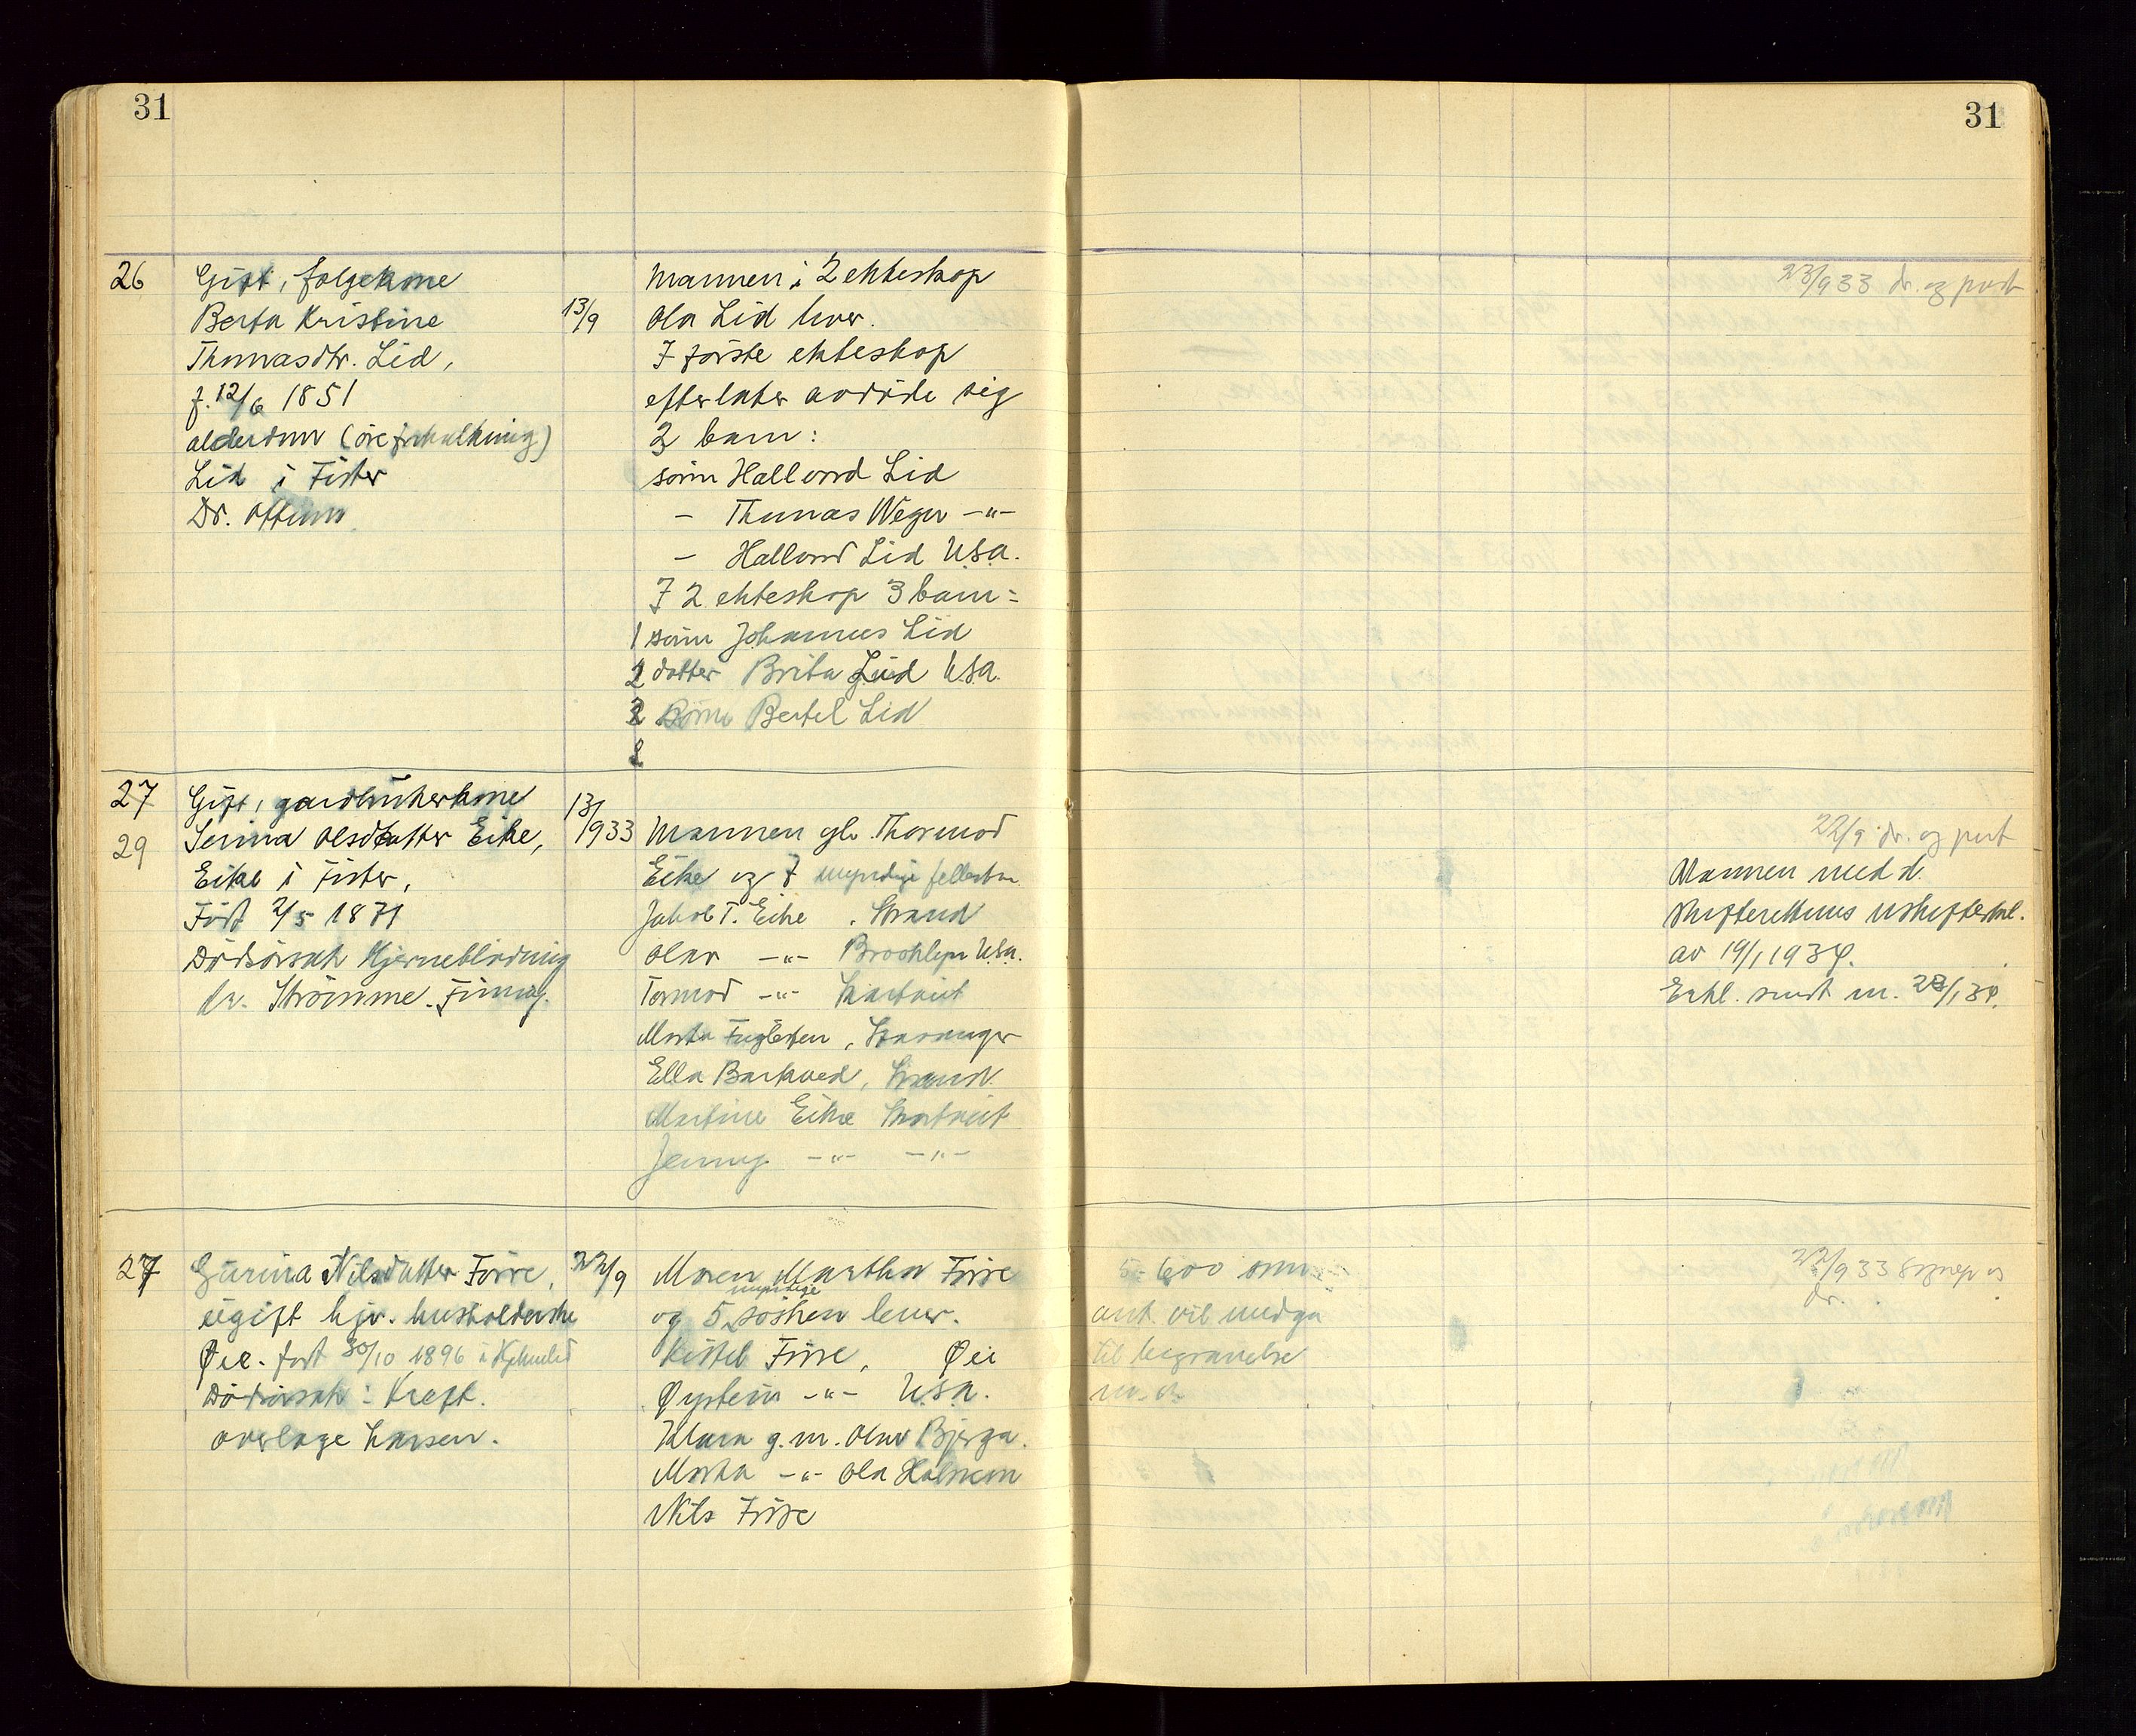 31
31
26
Gift, folgekone
Berta Kristine
Thomasdtr. Lid,
f. 12/6 1851
alderdom (öreforkalkning)
Lid i Fister
Dr. Offum
13/9
Mannen i 2 ekteskop
Ola Lid lever.
I förste ekteskop
efterlater avdöde sig
3 barn:
sönn Hallvard Lid
– Thomas Weger –"–
– Hallvard Lid U.S.A.
I 2 ekteskop 3 barn:
1 sönn Johannes Lid
2 datter Brita Lid U.S.A.
3 sönn Bertel Lid
23/9 33 dr. og prest
27
29
Gift, gardbrukerkone
Serina Olsdatter Eike,
Eike i Fister,
Födt 2/5 1871
Dödsörsak Hjerneblödning
dr. Strömme. Finnöy.
13/1933
Mannen gbr. Thormod
Eike og 7 myndige fellesbarn
Jakob T. Eike, Strand
Olav –"– Brooklyn U.S.A.
Tormod –"–
Marta Fuglesten, Stavanger
Ella Barkved, Strand
Martine Eike
Jenny –"– –"–
22/9 dr. og prest
Mannen med d.
skifterettens uskiftebel.
av 19/1 1934.
Erkl. sendt m. 23/1 34.
27
Gurina Nilsdatter Förre,
ugift hjv. husholderske
Öie. födt 30/10 1896 i Hjelmeland
Dödsörsak: Kreft.
overlæge Larsen.
22/9
Moren Martha Förre
og 5 myndige söshen lever.
Kittel Förre, Öie
Öystein –"– U.S.A.
Klara g.m. Olav Bjerga.
Marta –"– Ola Halvorsen
Nils Förre
5-600 som
ant. vil medgå
til begravelse
m.v.
22/9 33 Sogneprest og
dr.